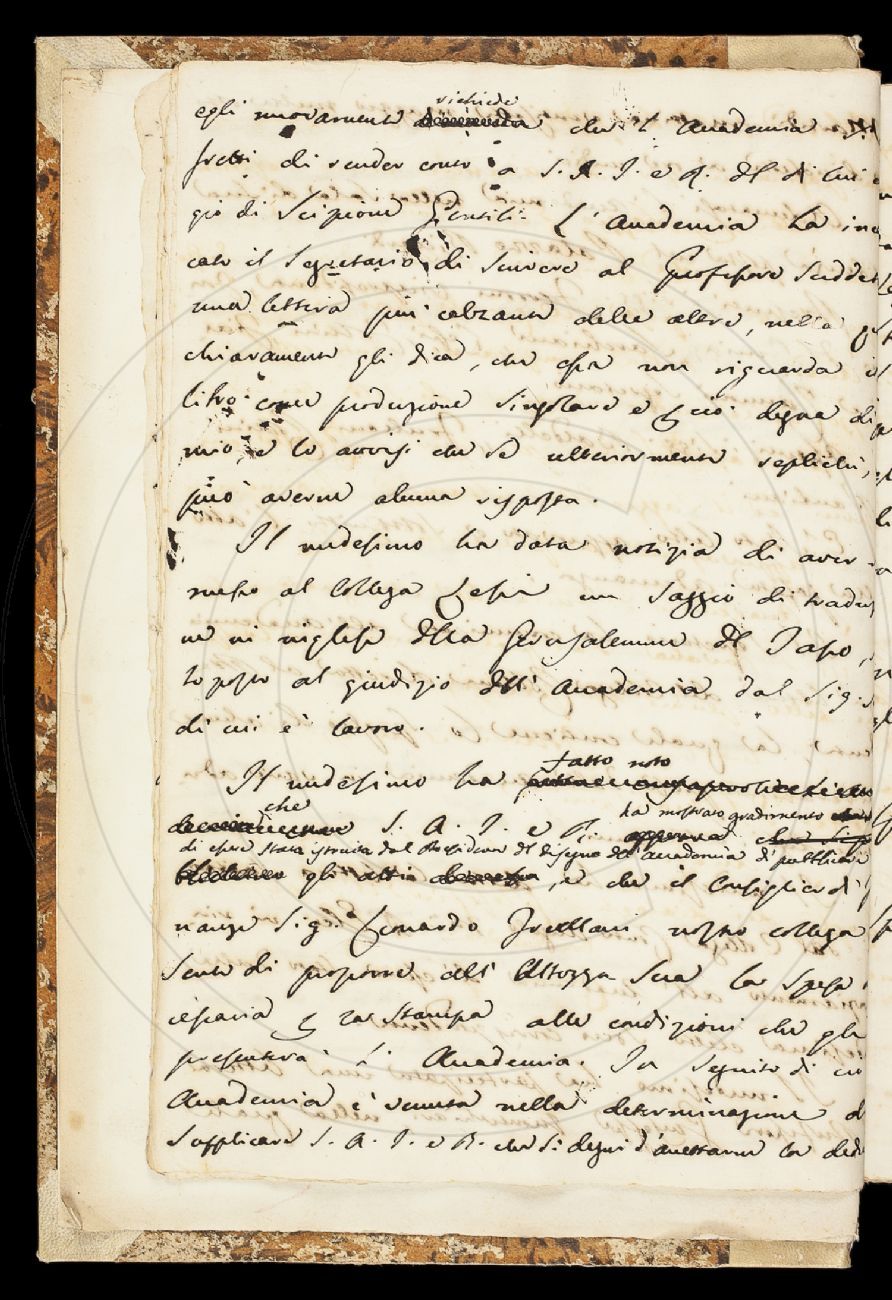 egli nuovamente richiede che l'Accademia si af
fretti di render conto a S. A. I. e R. del di lui
gio di Scipione Gentili. L'Accademia ha inca
cato il Segretario di scrivere al Professore Suddet
una lettera più calzante delle altre, nella
chiaramente gli dica, che essa non riguarda il
libro come produzione singolare e per ciò degna di
mio, e lo avvisi che se ulteriormente replichi,
può averne alcuna risposta.
Il medesimo ha data notizia di aver
messo al Collega Lessi un Saggio di traduz
ne in inglese della Gerusalemme del Tasso,
toposto al giudizio dell'Accademia dal Sig.
di cui è lavoro.
Il medesimo ha fatto noto
che S. A. I. e R. ha mostrato gradimento
di essere stata istruita dal Presidente del disegno dell'Accademia di pubblicare
gli atti, e che il Consigliere di
nanze Sig. Leonardo Frullani nostro collega
sente di proporre all'Altezza Sua la spesa
cessaria per la stampa alle condizioni che gli
presenterà l'Accademia. In seguito di ciò
Accademia è venuta nella determinazione d
supplicare S. A. I. e R. che si degni d'accettarne la dedi